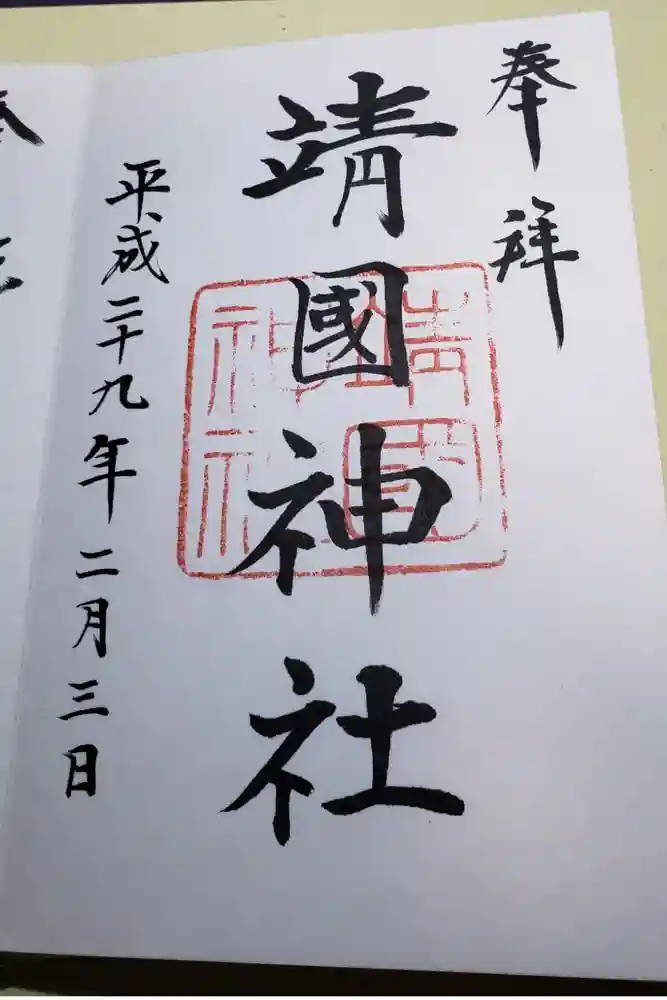 奉拝
靖國神社
靖國神社
平成二十九年二月三日
奉